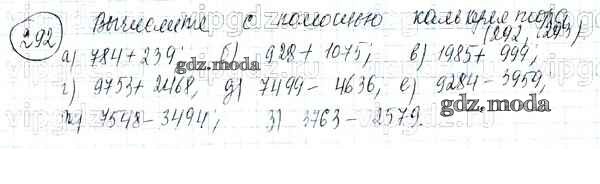 292 Вычислите с помощью калькулятора
(292, 293).
а) 784 + 239; б) 928 + 1075; в) 1985 + 999;
gdz.moda
г) 9753 + 2468, д) 7499 - 4636, е) 9284 - 3959,
gdz.moda
ж) 7548 - 3494; з) 3763 - 2579.